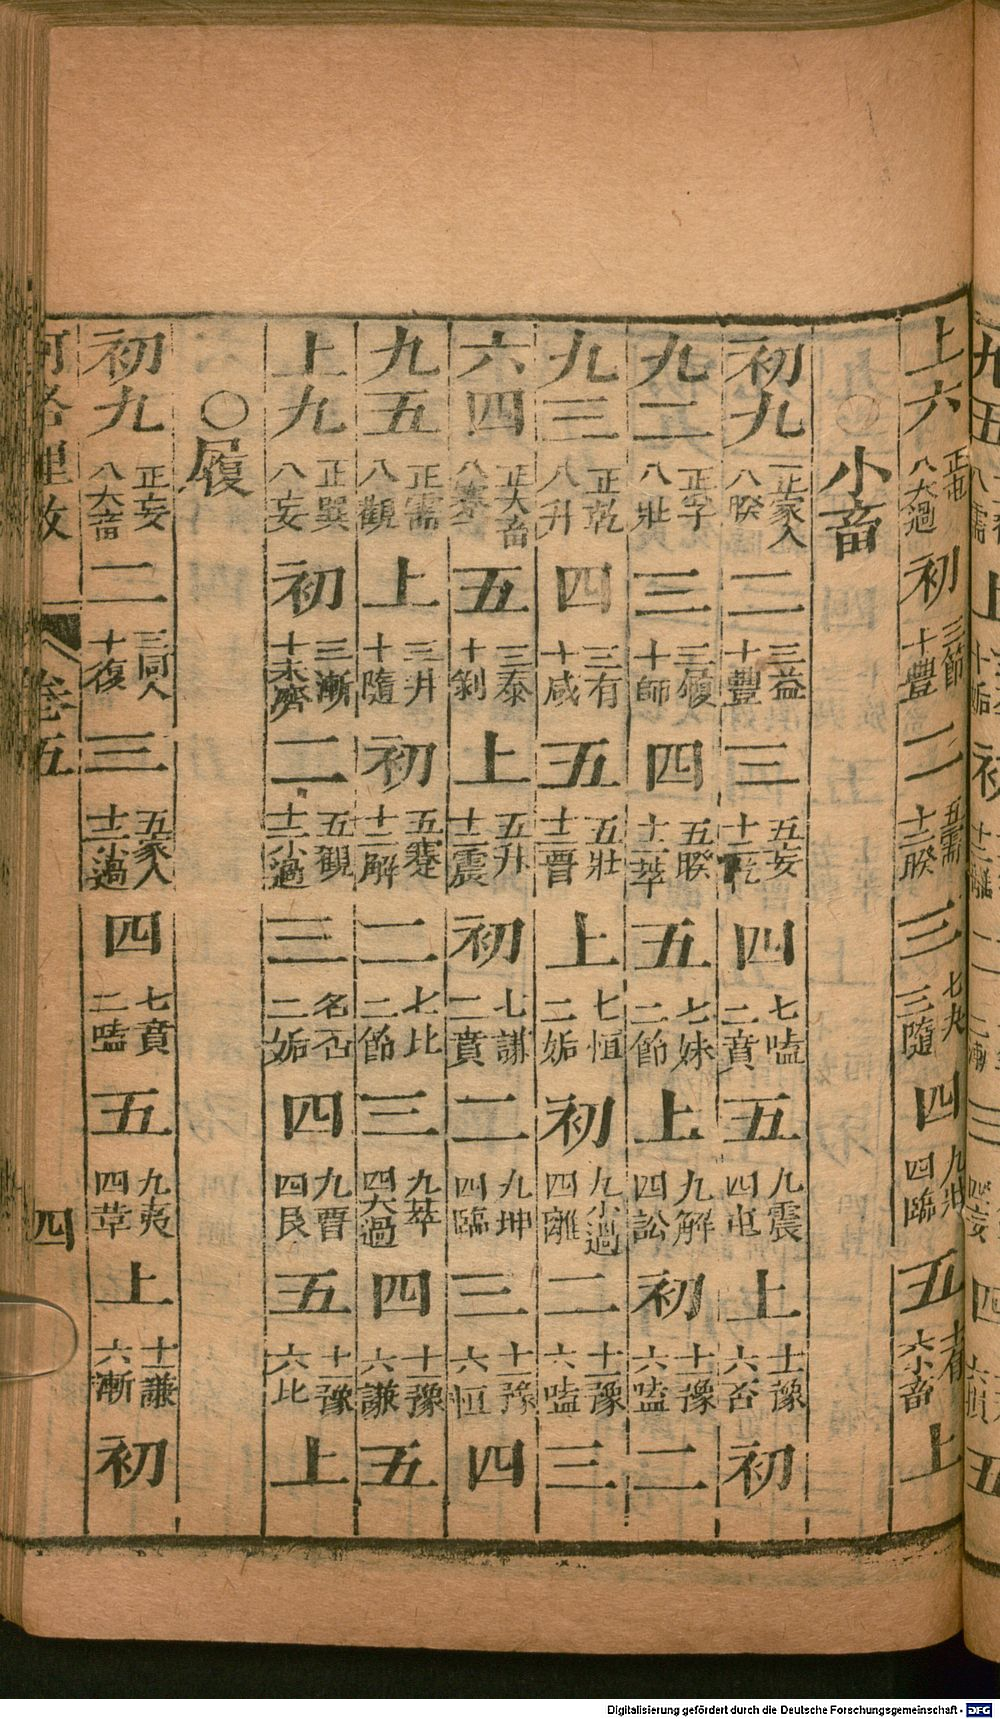 上六 正屯 八大過 初 三節 十豐 二 五需 十二睽 三 七夬 三隨 四 九壯 四臨 五 六小畜 上
小畜
初九 正家人 八睽 二 三益 十豐 三 五妄 十二乾 四 七嗑 二賁 五 九震 四屯 上 十一豫 六否 初
九二 正孚 八壯 三 三頤 十師 四 五睽 十二萃 五 七妹 二節 上 九解 四訟 初 十一豫 六嗑 二
九三 正乾 八升 四 三有 十咸 五 五壯 十二晉 上 七恒 二姤 初 九小過 四離 二 十一豫 六嗑 三
六四 正大畜 八蹇 五 三泰 十剝 上 五升 十二震 初 七謙 二賁 二 九坤 四臨 三 十一豫 六恒 四
九五 正需 八觀 上 三井 十隨 初 五蹇 十二解 二 七比 二節 三 九萃 四大過 四 十一豫 六謙 五
上九 正巽 八妄 初 三漸 十未濟 二 五觀 十二小過 三 名否 二姤 四 九晉 四艮 五 十一豫 六比 上
○履
初九 正妄 八大畜 二 三同人 十復 三 五家人 十二小過 四 七賁 二嗑 五 九夷 四革 上 十一謙 六漸 初
河洛理數 卷五 四
Digitalisierung gefördert durch die Deutsche Forschungsgemeinschaft - DFG